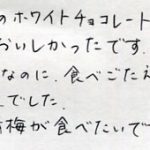 のホワイトチョコレート
おいしかったです.
なのに、食べごたえ
でした.
梅が食べたいで